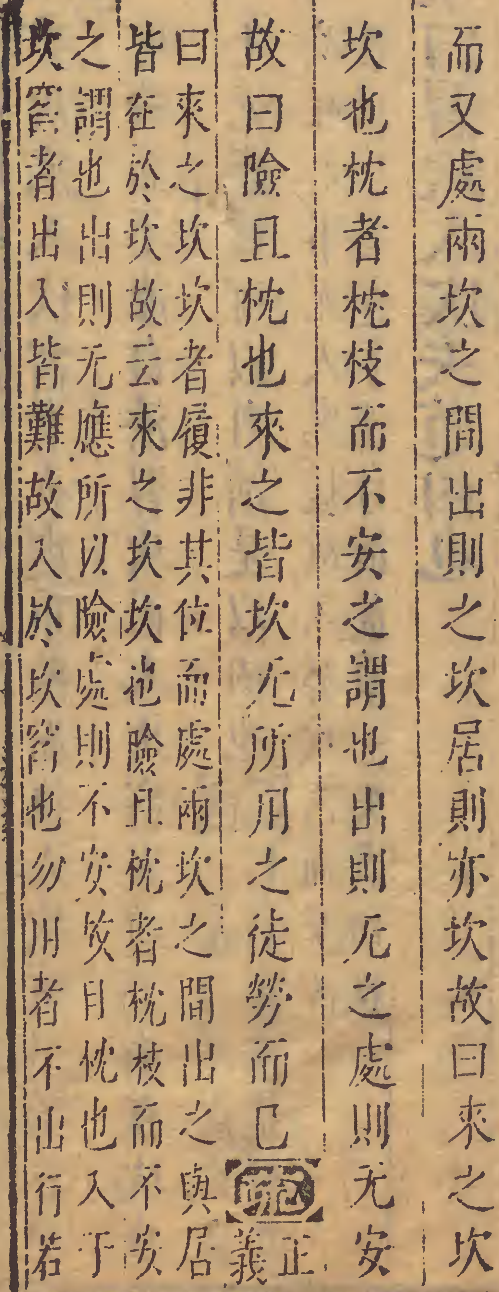 而又處兩坎之間出則之坎居則亦坎故曰來之坎
坎也枕者枕枝而不安之謂也出則无之處則无安
故曰險且枕也來之皆坎无所用之徒勞而已疏正義
曰來之坎坎者履非其位而處兩坎之間出之與居
皆在於坎故云來之坎坎也險且枕者枕枝而不安
之謂也出則无應所以險處則不安故且枕也入于
坎窞者出入皆難故入於坎窞也勿用者不出行若